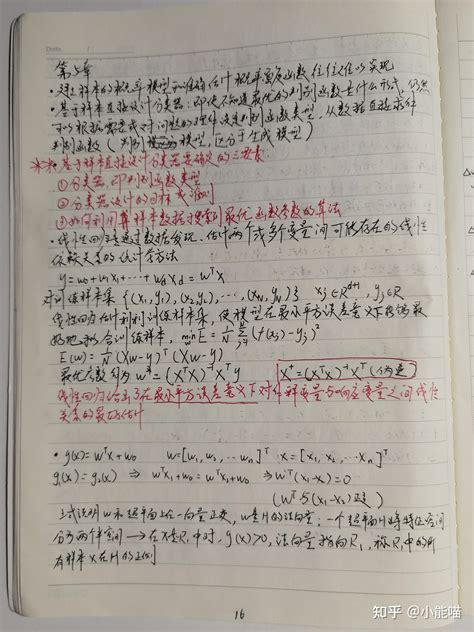 第5章
• 建立样本的概率模型和准确估计概率密度函数往往难以实现
• 基于样本直接设计分类器：即使不知道最优的判别函数是什么形式，仍然
可以根据需要或对问题的理解设定判别函数类型，从数据直接求解
判别函数（判别模型，区分于生成模型）
基于样本直接设计分类器要确定的三要素：
①分类器，即判别函数类型
②分类器设计的目标或准则
③如何利用算样本数据搜索到最优函数参数的算法
• 线性回归是通过数据发现、估计两个或多个变量间可能存在的线性
依赖关系的统计学方法
y=w₀+w₁x₁+…+w_d x_d = wᵀx
对训练样本集 {(x₁,y₁), (x₂,y₂), …, (x_N,y_N)} x_j∈R^(d+1), y_j∈R
线性回归估计利用训练样本集，使模型在最小平方误差意义下能够最
好地拟合训练样本，min E = 1/N Σ (f(x_j)-y_j)²
E(w)= 1/N (Xw-y)ᵀ(Xw-y)
最优参数组为 w* = (XᵀX)⁻¹Xᵀy X⁺=(XᵀX)⁻¹Xᵀ(伪逆)
线性回归给出了在最小平方误差意义下对样本变量与响应变量之间线性
关系的最好估计
• g(x)=wᵀx+w₀ w=[w₁, w₂, …w_n]ᵀ x=[x₁, x₂, …x_n]ᵀ
g(x₁)=g(x₂) ⇒ wᵀx₁+w₀=wᵀx₂+w₀ ⇒wᵀ(x₁-x₂)=0
(wᵀ与(x₁-x₂)正交)
上式说明w和超平面上任一向量正交，w是H的法向量；一个超平面H将特征空间
分为两个半空间→在R₁中时，g(x)>0，法向量指向R₁，称R₁中的所
有样本x在H的正侧
16
知乎 @小能喵